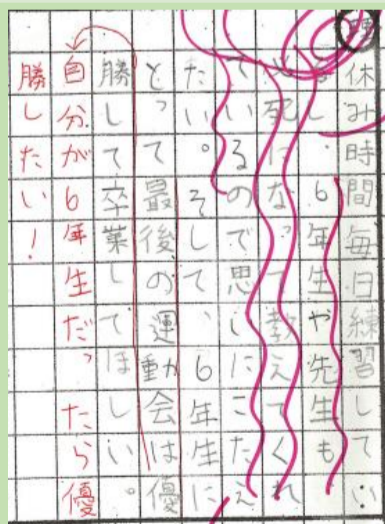 休み時間毎日練習してい
し、6年生や先生も
必死になって教えてくれ
ているので思いにこたえ
たい。そして、6年生に
とって最後の運動会は優
勝して卒業してほしい。
自分が6年生だったら優
勝したい！